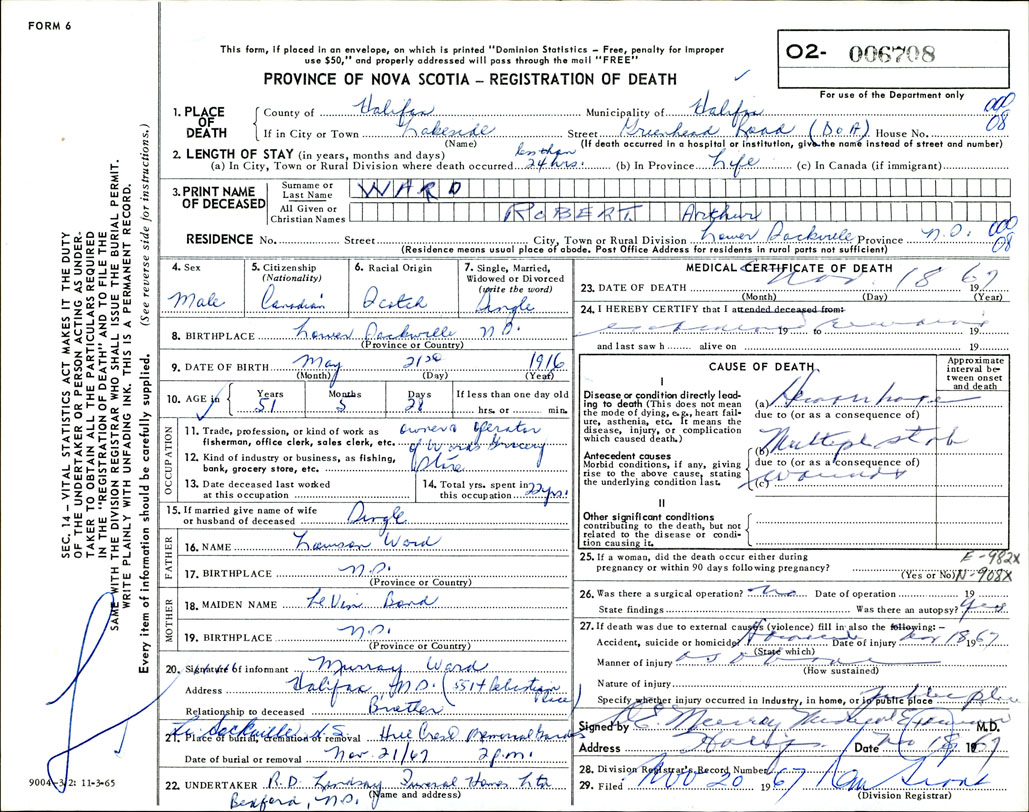 FORM 6
This form, if placed in an envelope, on which is printed "Dominion Statistics – Free, penalty for improper
use $50," and properly addressed will pass through the mail "FREE"
PROVINCE OF NOVA SCOTIA – REGISTRATION OF DEATH
O2- 006708
For use of the Department only
1. PLACE OF DEATH
County of Halifax Municipality of Halifax 000
If in City or Town Lakeside Street Greenhead Road (DOA) House No. 08
(Name) (If death occurred in a hospital or institution, give the name instead of street and number)
2. LENGTH OF STAY (in years, months and days)
(a) In City, Town or Rural Division where death occurred less than 24 hrs. (b) In Province Life (c) In Canada (if immigrant)
3. PRINT NAME OF DECEASED
Surname or Last Name WARD
All Given or Christian Names ROBERT Arthur
RESIDENCE No. Street City, Town or Rural Division Lower Sackville Province N.S. 000
(Residence means usual place of abode. Post Office Address for residents in rural parts not sufficient) 08
4. Sex Male
5. Citizenship (Nationality) Canadian
6. Racial Origin Scotch
7. Single, Married, Widowed or Divorced (write the word) Single
8. BIRTHPLACE Lower Sackville N.S.
(Province or Country)
9. DATE OF BIRTH May 21st 1916
(Month) (Day) (Year)
10. AGE in Years 51 Months 5 Days 28 If less than one day old hrs. or min.
OCCUPATION
11. Trade, profession, or kind of work as fisherman, office clerk, sales clerk, etc. owner & operator
12. Kind of industry or business, as fishing, bank, grocery store, etc. of Wards Grocery Store
13. Date deceased last worked at this occupation
14. Total yrs. spent in this occupation 22 yrs.
15. If married give name of wife or husband of deceased Single
FATHER
16. NAME Lawson Ward
17. BIRTHPLACE N.S.
(Province or Country)
MOTHER
18. MAIDEN NAME
19. BIRTHPLACE N.S.
(Province or Country)
20. Signature of informant Murray Ward
Address Halifax N.S. (5514 Place)
Relationship to deceased Brother
Lr Sackville N.S.
21. Place of burial, cremation or removal Memorial Gardens
Date of burial or removal Nov. 21/67 2 pm.
22. UNDERTAKER R.D. Lindsay Funeral Home Ltd
(Name and address)
Bedford, N.S.
MEDICAL CERTIFICATE OF DEATH
23. DATE OF DEATH Nov. 18 1967
(Month) (Day) (Year)
24. I HEREBY CERTIFY that I attended deceased from:
examined 19 to remains 19
and last saw h alive on 19
CAUSE OF DEATH
Approximate interval between onset and death
I
Disease or condition directly leading to death (This does not mean the mode of dying, e.g., heart failure, asthenia, etc. It means the disease, injury, or complication which caused death.)
(a) Hemorrhage
due to (or as a consequence of)
Antecedent causes
Morbid conditions, if any, giving rise to the above cause, stating the underlying condition last.
(b) Multiple stab
due to (or as a consequence of)
(c) wounds
II
Other significant conditions contributing to the death, but not related to the disease or condition causing it.
25. If a woman, did the death occur either during pregnancy or within 90 days following pregnancy? (Yes or No)
E-982X
N-908X
26. Was there a surgical operation? No Date of operation 19
State findings Was there an autopsy? Yes
27. If death was due to external causes (violence) fill in also the following: –
Accident, suicide or homicide? Homicide Date of injury Nov 18 1967
(State which)
Manner of injury as above
(How sustained)
Nature of injury
Specify whether injury occurred in Industry, in home, or in public place Public place
Signed by Murray Medical Examiner M.D.
Address Halifax Date No 18 1967
28. Division Registrar's Record Number
29. Filed NOV 20 1967
(Division Registrar)
SEC. 14 – VITAL STATISTICS ACT MAKES IT THE DUTY
OF THE UNDERTAKER OR PERSON ACTING AS UNDER-
TAKER TO OBTAIN ALL THE PARTICULARS REQUIRED
IN THE "REGISTRATION OF DEATH" AND TO FILE THE
SAME WITH THE DIVISION REGISTRAR WHO SHALL ISSUE THE BURIAL PERMIT.
WRITE PLAINLY WITH UNFADING INK. THIS IS A PERMANENT RECORD.
Every item of information should be carefully supplied. (See reverse side for instructions.)
9004-3/2: 11-3-65